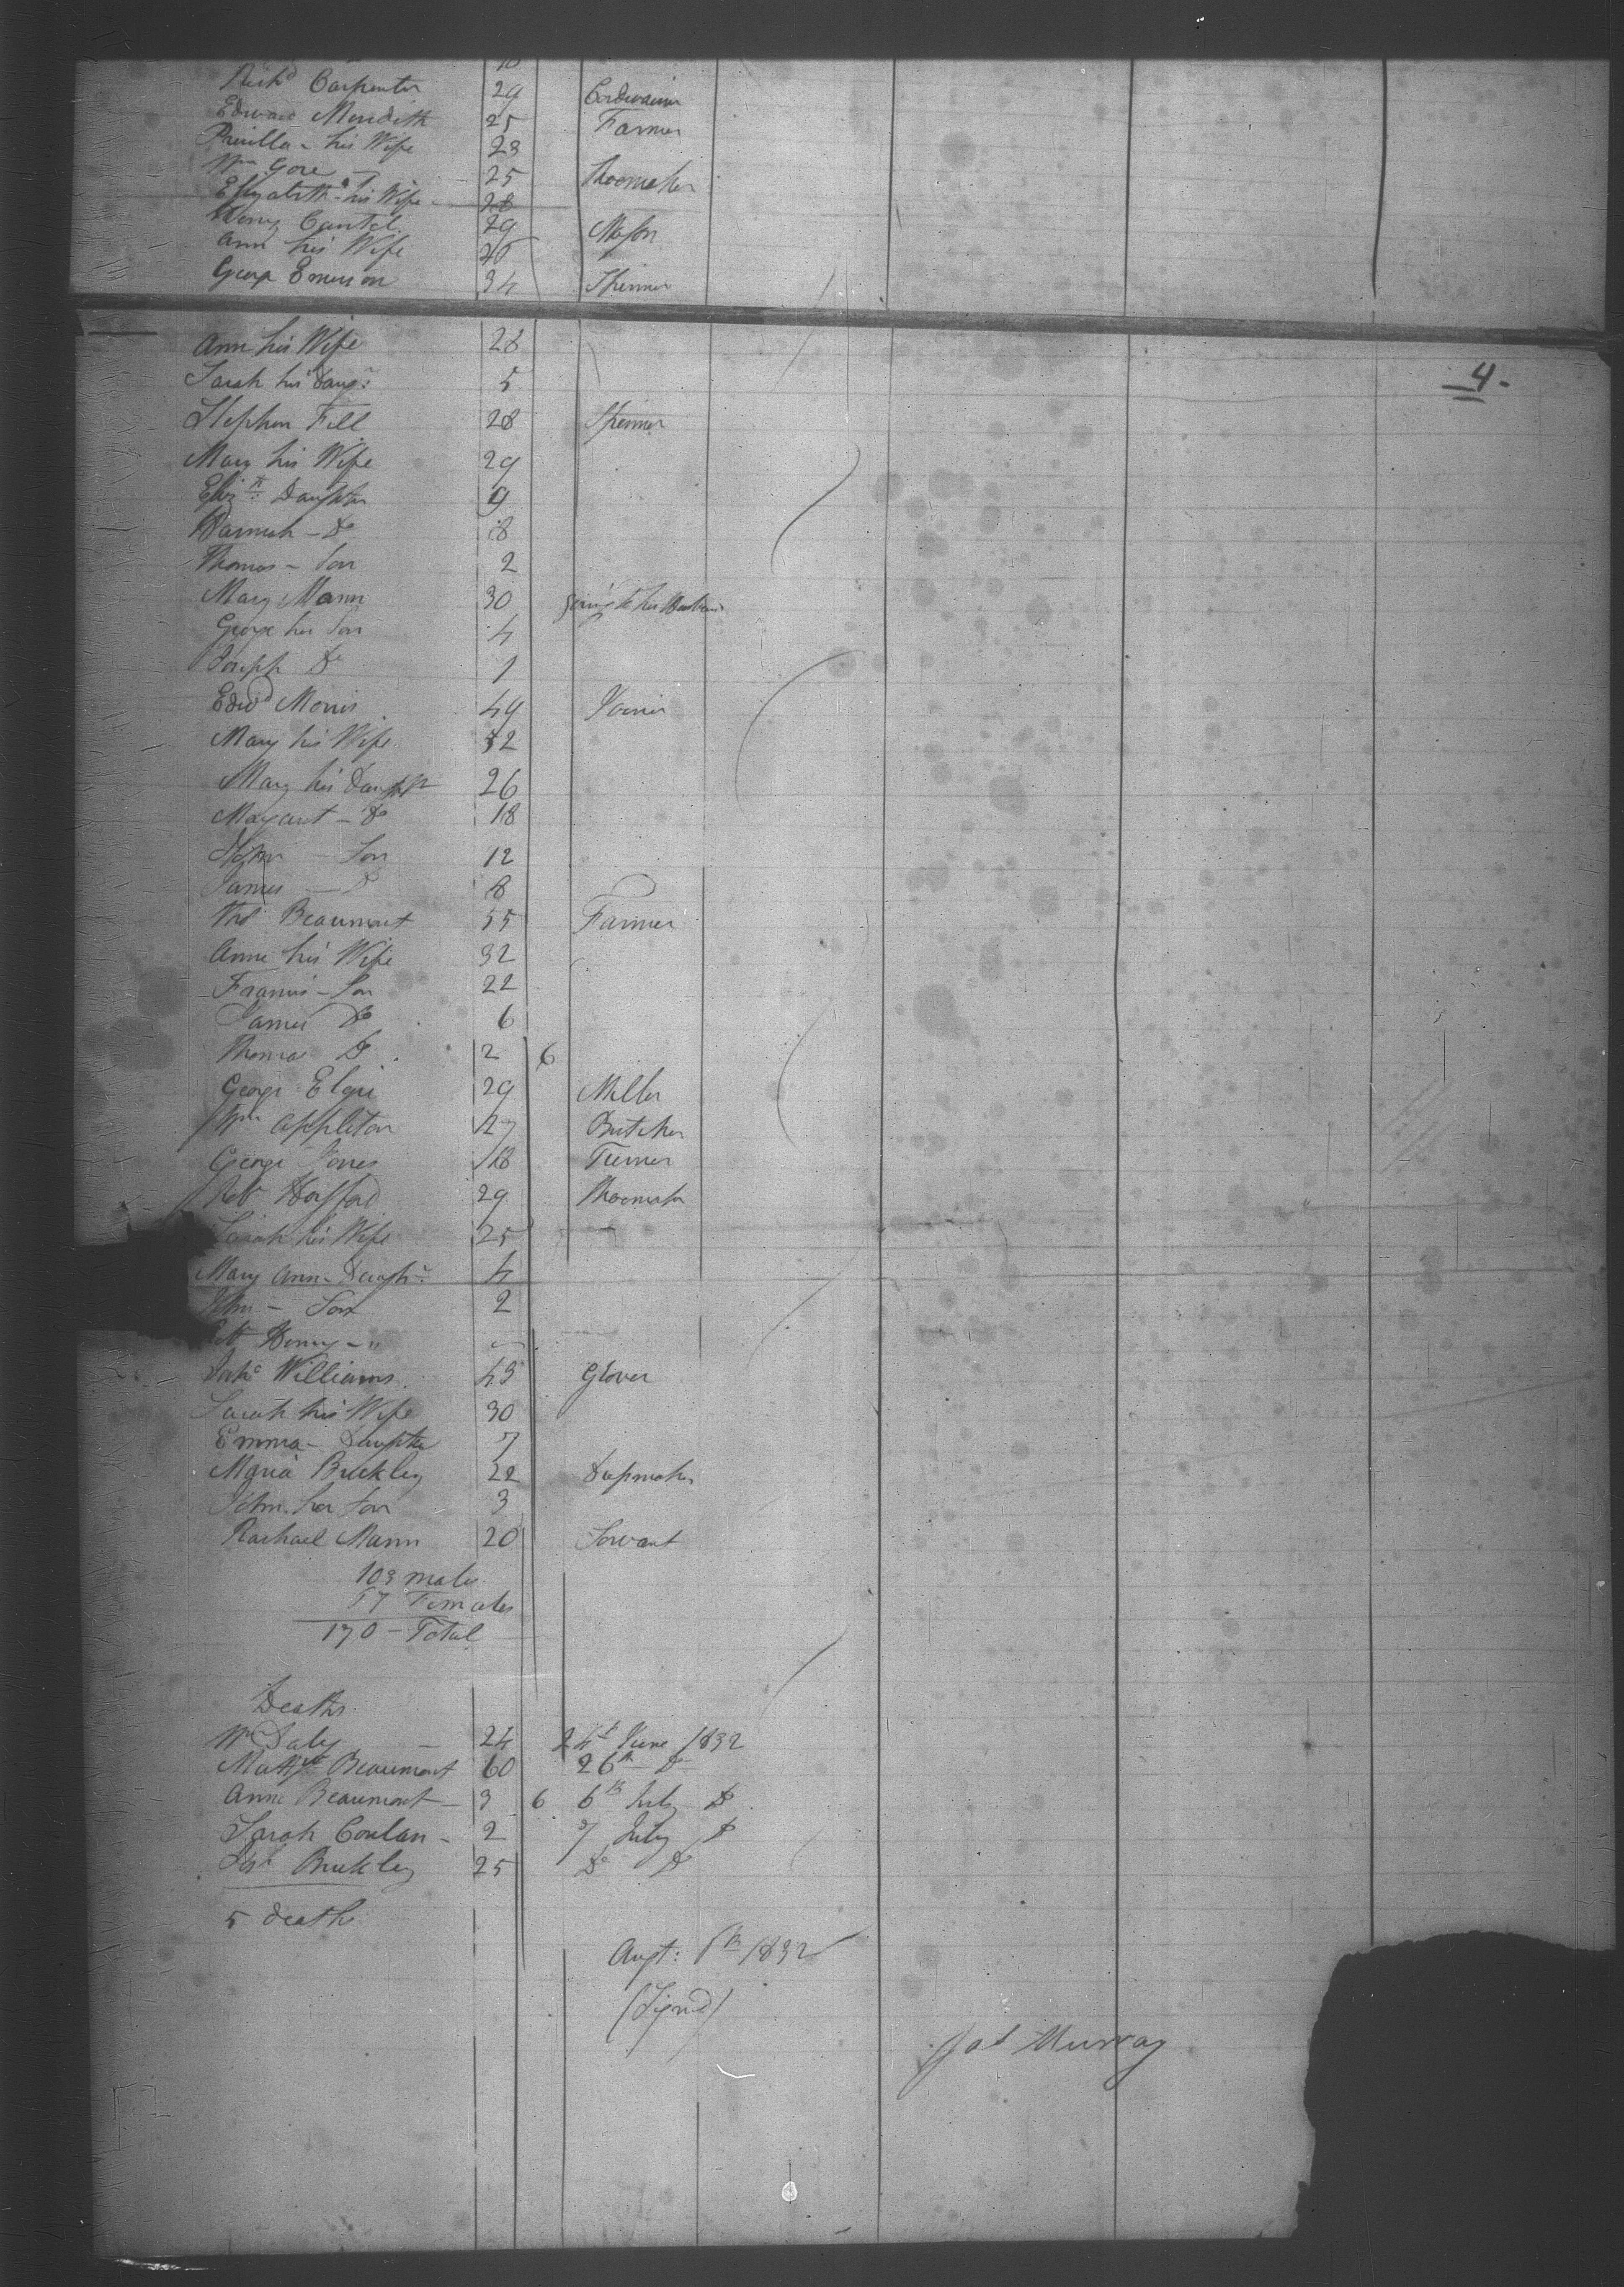 10
Rich^d Carpenter 29 Cordwainer
Edward Meredith 25 Farmer
Priscilla - his Wife 23
W^m Gore 25 Shoemaker
Elizabeth - his Wife - 28
Henry Cantel. 29 Mason
Ann his Wife 25
George Emerson 34 Skinner
4-
Ann his Wife 28
Sarah his Daug^r: 5
Stephen Fell 28 Skinner
Mary his Wife 29
Eliz^th: Daughter 9
Hannah - D^o 8
Thomas - Son 2
Mary Mann 30 going to her Husband
George her Son 4
Joseph D^o 1
Edw^d Morris 49 Joiner
Mary his Wife. 52
Mary his Daught^r 26
Margaret - D^o 18
John - Son 12
James - D^o 8
Tho^s Beaumont 55 Farmer
Anne his Wife 32
Francis - Son 22
James D^o 6
Thomas D^o. 2 6
George Elgie 29 Miller
W^m Appleton 27 Butcher
George Jones 18 Turner
Rob^t 29 Shoemaker
Sarah his Wife 25 -
Mary Ann - Daugh^r: 4
John - Son 2
Henry - "
Williams. 43 Glover
Sarah his Wife 30
Emma - Daughter 7
Maria Buckley 22 Capmaker
John her Son 3
Rachael Mann 20 Servant
103 males
67 Females
170 - Total
Deaths.
W^m Daley - 24 24^th June 1832
Matt^w Beaumont 60 26^th D^o
Anne Beaumont - 3 6 6^th July D^o
Sarah Conlan - 2 7 July D^o
Buckley 25 D^o D^o
5 deaths
Augt: 1832
(Signed)
Jas Murray